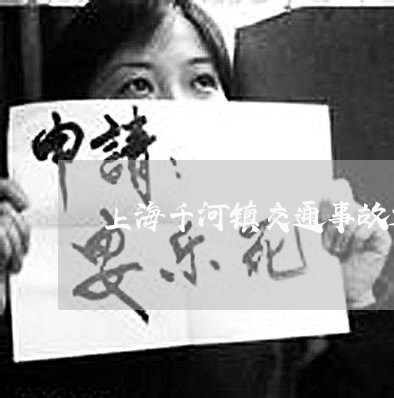 申請：
上海千河镇交通事故
要乐死